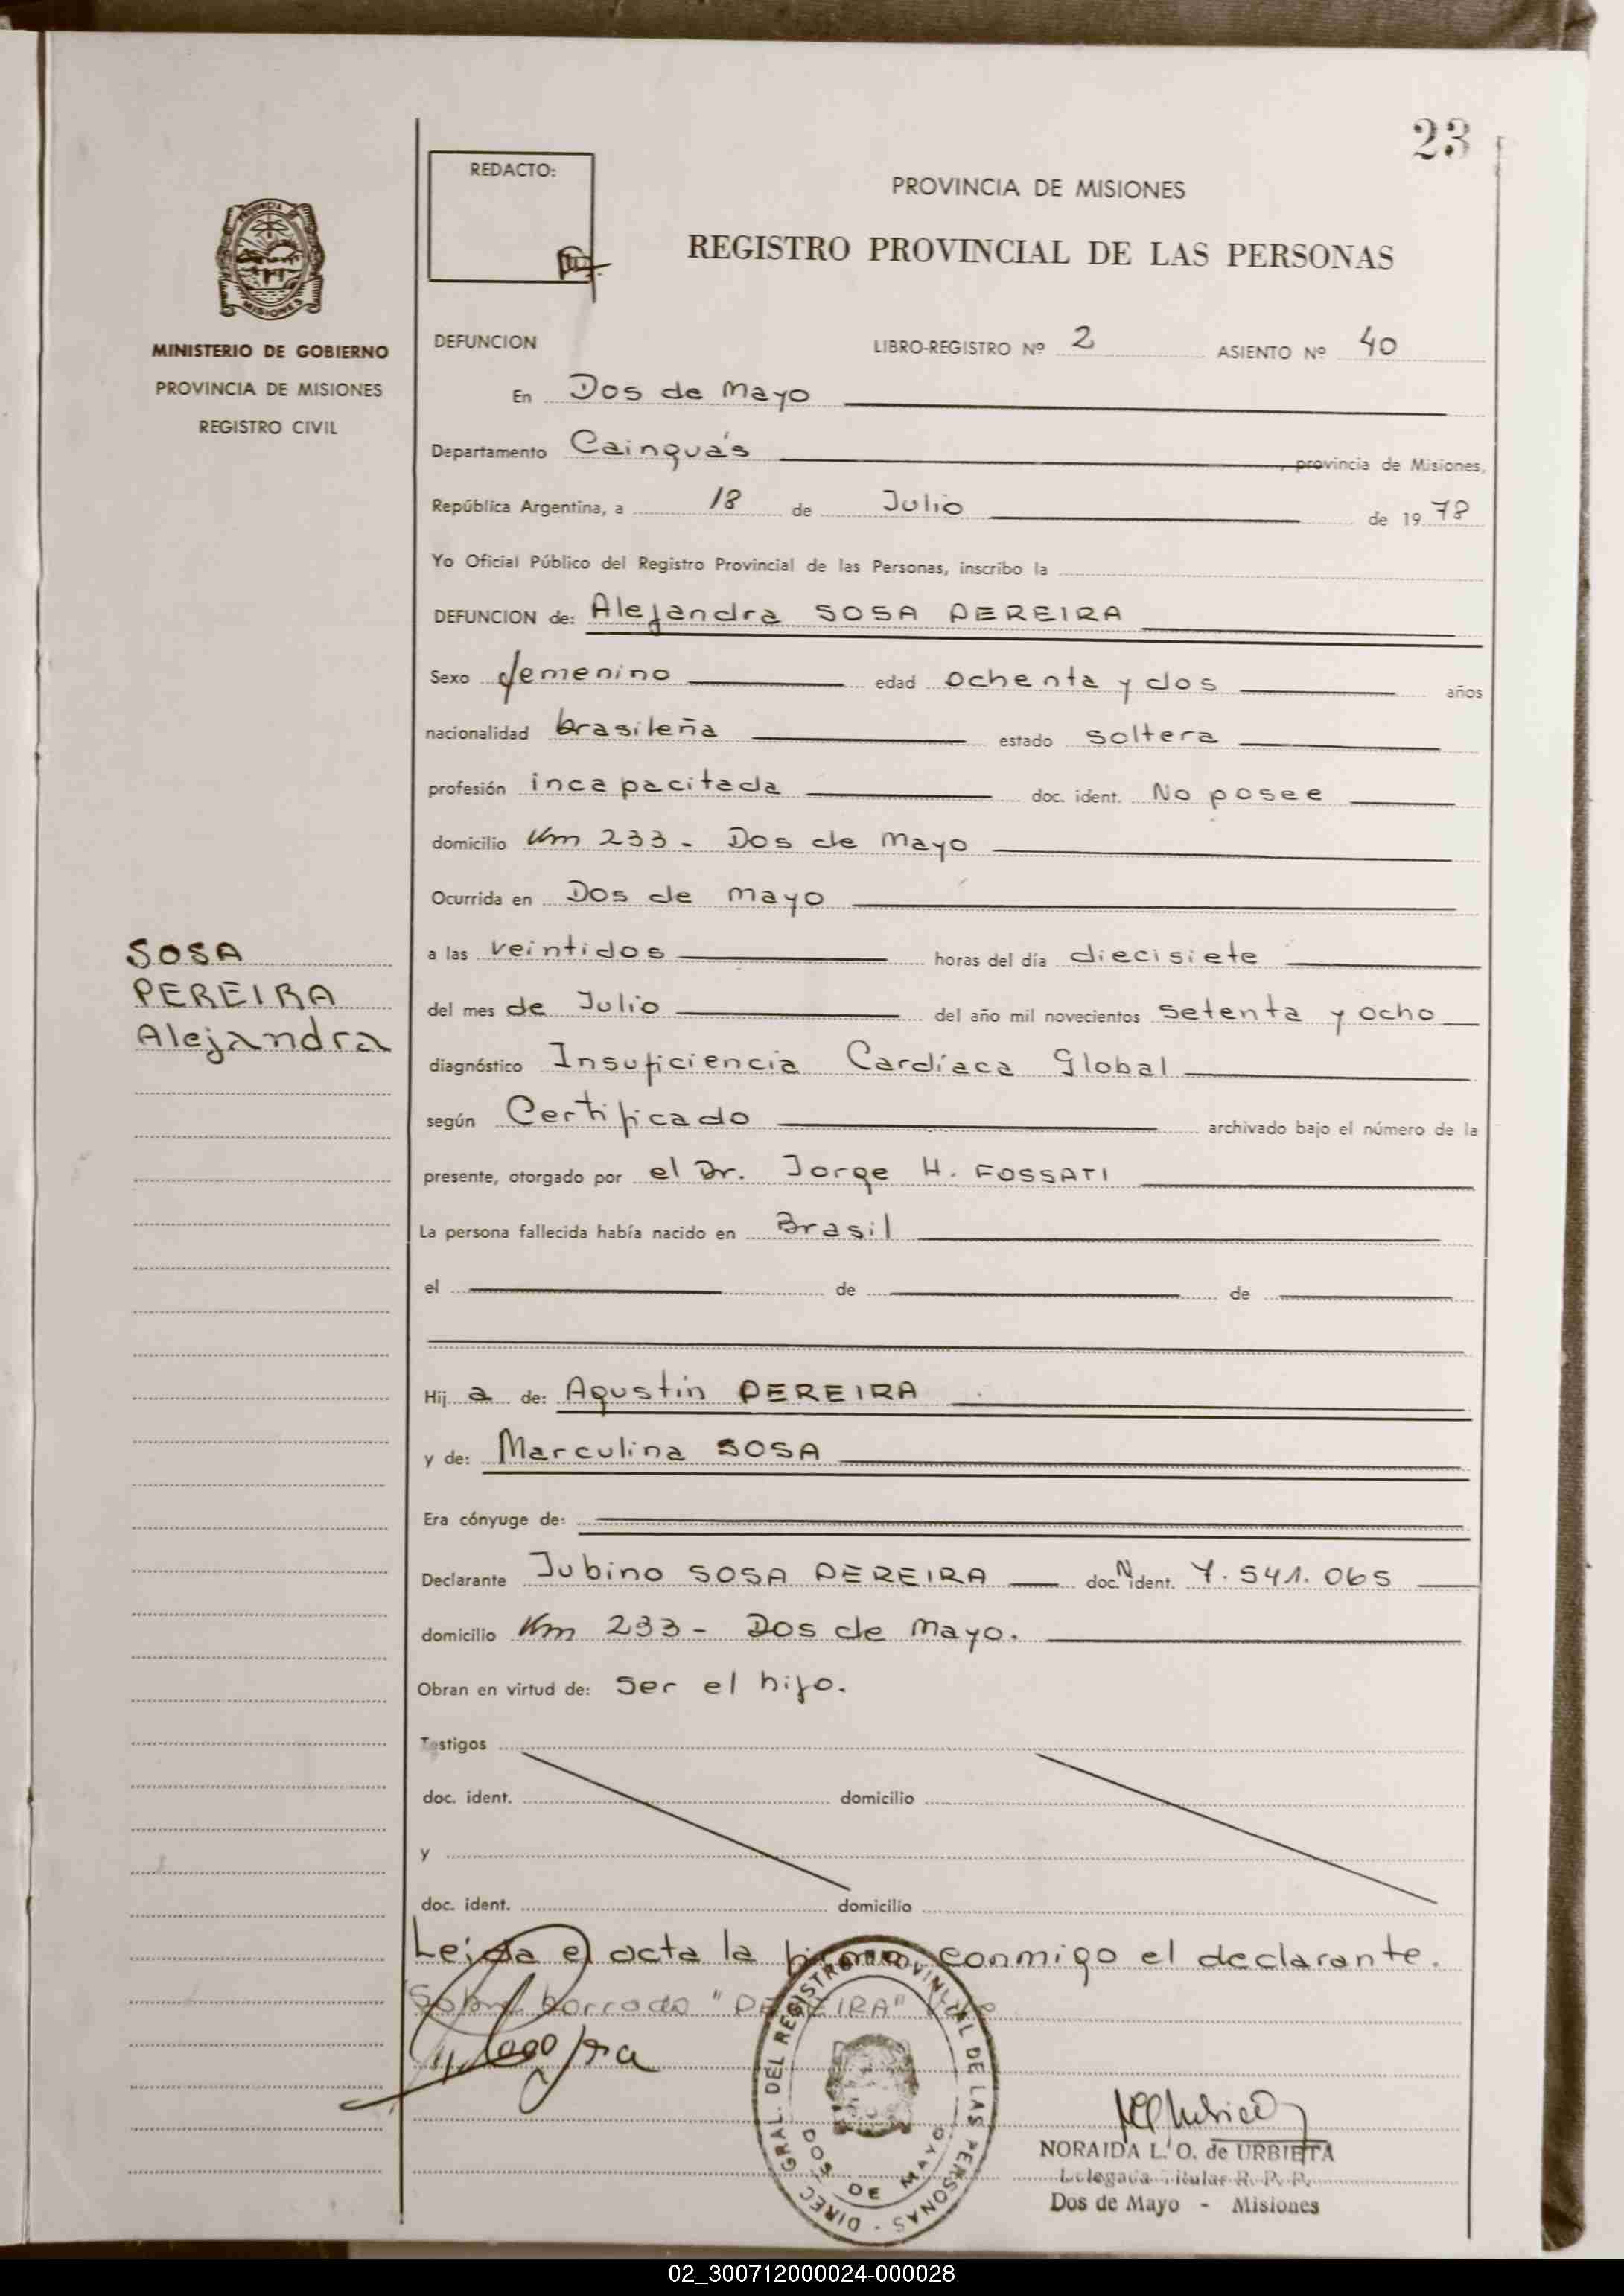 23
REDACTO:
PROVINCIA DE MISIONES
REGISTRO PROVINCIAL DE LAS PERSONAS
PROVINCIA
MISIONES
MINISTERIO DE GOBIERNO
PROVINCIA DE MISIONES
REGISTRO CIVIL
DEFUNCION LIBRO-REGISTRO Nº 2 ASIENTO Nº 40
En Dos de Mayo
Departamento Cainguás, provincia de Misiones,
República Argentina, a 18 de Julio de 1978
Yo Oficial Público del Registro Provincial de las Personas, inscribo la
DEFUNCION de: Alejandra SOSA PEREIRA
Sexo femenino edad ochenta y dos años
nacionalidad brasileña estado soltera
profesión incapacitada doc. ident. No posee
domicilio Km 233 - Dos de Mayo
Ocurrida en Dos de mayo
SOSA
PEREIRA
Alejandra
a las veintidos horas del día diecisiete
del mes de Julio del año mil novecientos setenta y ocho
diagnóstico Insuficiencia Cardíaca Global
según Certificado archivado bajo el número de la
presente, otorgado por el Dr. Jorge H. FOSSATI
La persona fallecida había nacido en Brasil
el de de
Hij a de: Agustin PEREIRA
y de: Marculina SOSA
Era cónyuge de:
Declarante Jubino SOSA PEREIRA doc. N ident. 7.541.065
domicilio Km 233 - Dos de Mayo.
Obran en virtud de: Ser el hijo.
Testigos
doc. ident. domicilio
y
doc. ident. domicilio
Leída el acta la firma conmigo el declarante.
Sobre borrado "PEREIRA" Vale
DIREC. GRAL. DEL REGISTRO PROVINCIAL DE LAS PERSONAS -
DOS DE MAYO
NORAIDA L. O. de URBIETA
Delegada Titular R. P. P.
Dos de Mayo - Misiones
02_300712000024-000028